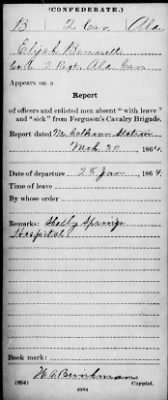 (CONFEDERATE.)
B 2 Cav. Ala.
Elijah Bennett
Co. 2 Regt. Ala. Cav.
Appears on a
Report
of officers and enlisted men absent "with leave"
and "sick" from Ferguson's Cavalry Brigade.
Report dated Station
Mch 30, 1864
Date of departure 28 Jan, 1864.
Time of leave
By whose order
Remarks: Shelby Springs
Hospital
Book mark:
Copyist.